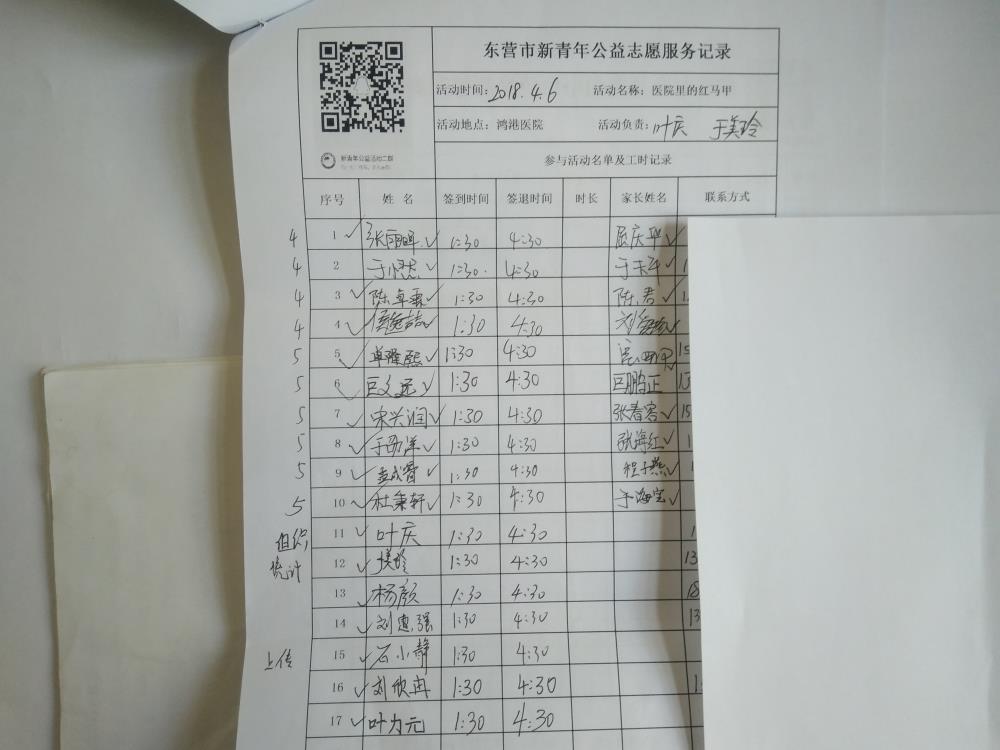 东营市新青年公益志愿服务记录
活动时间：2018.4.6 活动名称：医院里的红马甲
活动地点：鸿港医院 活动负责：叶庆 于美玲
新青年公益活动二群
参与活动名单及工时记录
序号 姓名 签到时间 签退时间 时长 家长姓名 联系方式
4 1 1:30 4:30
4 2 1:30 4:30
4 3 陈卓霖 1:30 4:30 陈君
4 4 1:30 4:30
5 5 1:30 4:30 15
5 6 巨文远 1:30 4:30 巨鹏正 13
5 7 宋兴润 1:30 4:30 张春客 15
5 8 1:30 4:30 张海红
5 9 1:30 4:30
5 10 杜秉轩 1:30 4:30 于海宝
组织 11 叶庆 1:30 4:30
统计 12 1:30 4:30 13
13 杨颜 1:30 4:30 18
14 刘惠强 1:30 4:30 13
上传 15 石小静 1:30 4:30
16 刘欣冉 1:30 4:30
17 叶力元 1:30 4:30